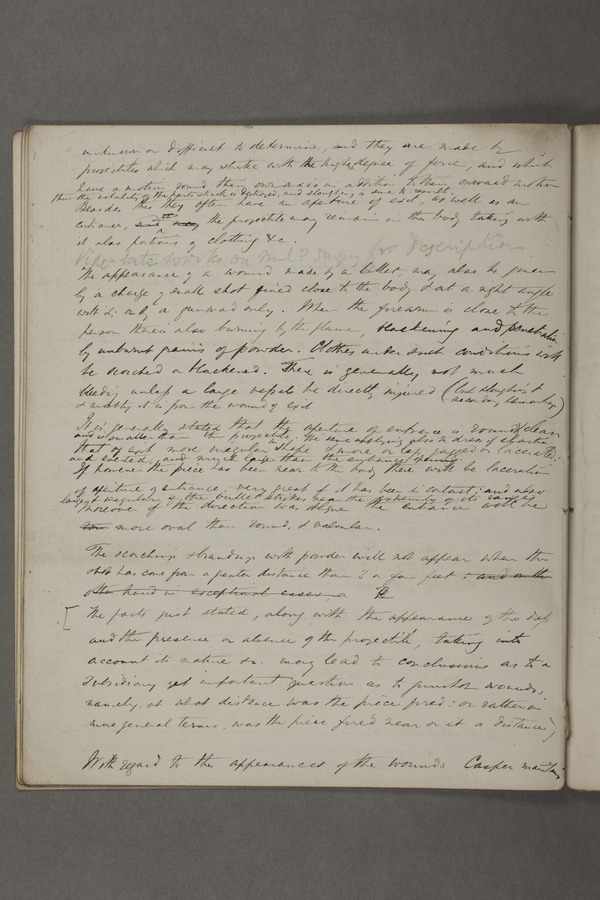 unknown or difficult to determine, and they are made by
projectiles which may strike with the highest degree of force, and which
have a motion round their own axis in addition to their onward motion
then the vitality of the parts struck is destroyed, and sloughing is sure to result.
Besides this they often have an aperture of exit, as well as an
entrance, the projectile may remain in the body taking with
it also portions of clothing &c.
late works on Mily Surgy for Description
The appearance of a wound made by a bullet, may also be given
by a charge of small shot fired close to the body & at a right angle
with it; or by a gun wad only. When the firearm is close to the
person there is also burning by the flame, blackening and penetration
by unburnt grains of powder. Clothes under such conditions will
be scorched or blackened. There is generally not much
bleeding unless a large vessel be directly injured (but sloughing &
secondary hemorrhage)
& mostly it is from the wound of exit
It is generally stated that the aperture of entrance is round & clean
and smaller than the projectile. The same applying also to dress if elastic
that of exit more irregular shape & more or less jagged or lacerated
and everted, and much larger than the entrance opening
If however the piece has been near to the body there will be laceration
of aperture of entrance, very great if it has been in contact; and also
large & irregular if the bullet strikes near the extremity of its range
Moreover if the direction was oblique the entrance will be
more oval than round, & valvular.
The scorching & branding with powder will not appear when the
shot has come from a greater distance than 3 or four feet & and on the
other hand in exceptional cases, a
[ The facts just stated, along with the appearance of the dress
and the presence or absence of the projectile, taking into
account its nature &c. may lead to conclusions as to a
subsidiary yet important question as to gunshot wounds,
namely, at what distance was the piece fired: or rather in
more general terms, was the piece fired near or at a distance]
With regard to the appearances of the wounds Casper maintains